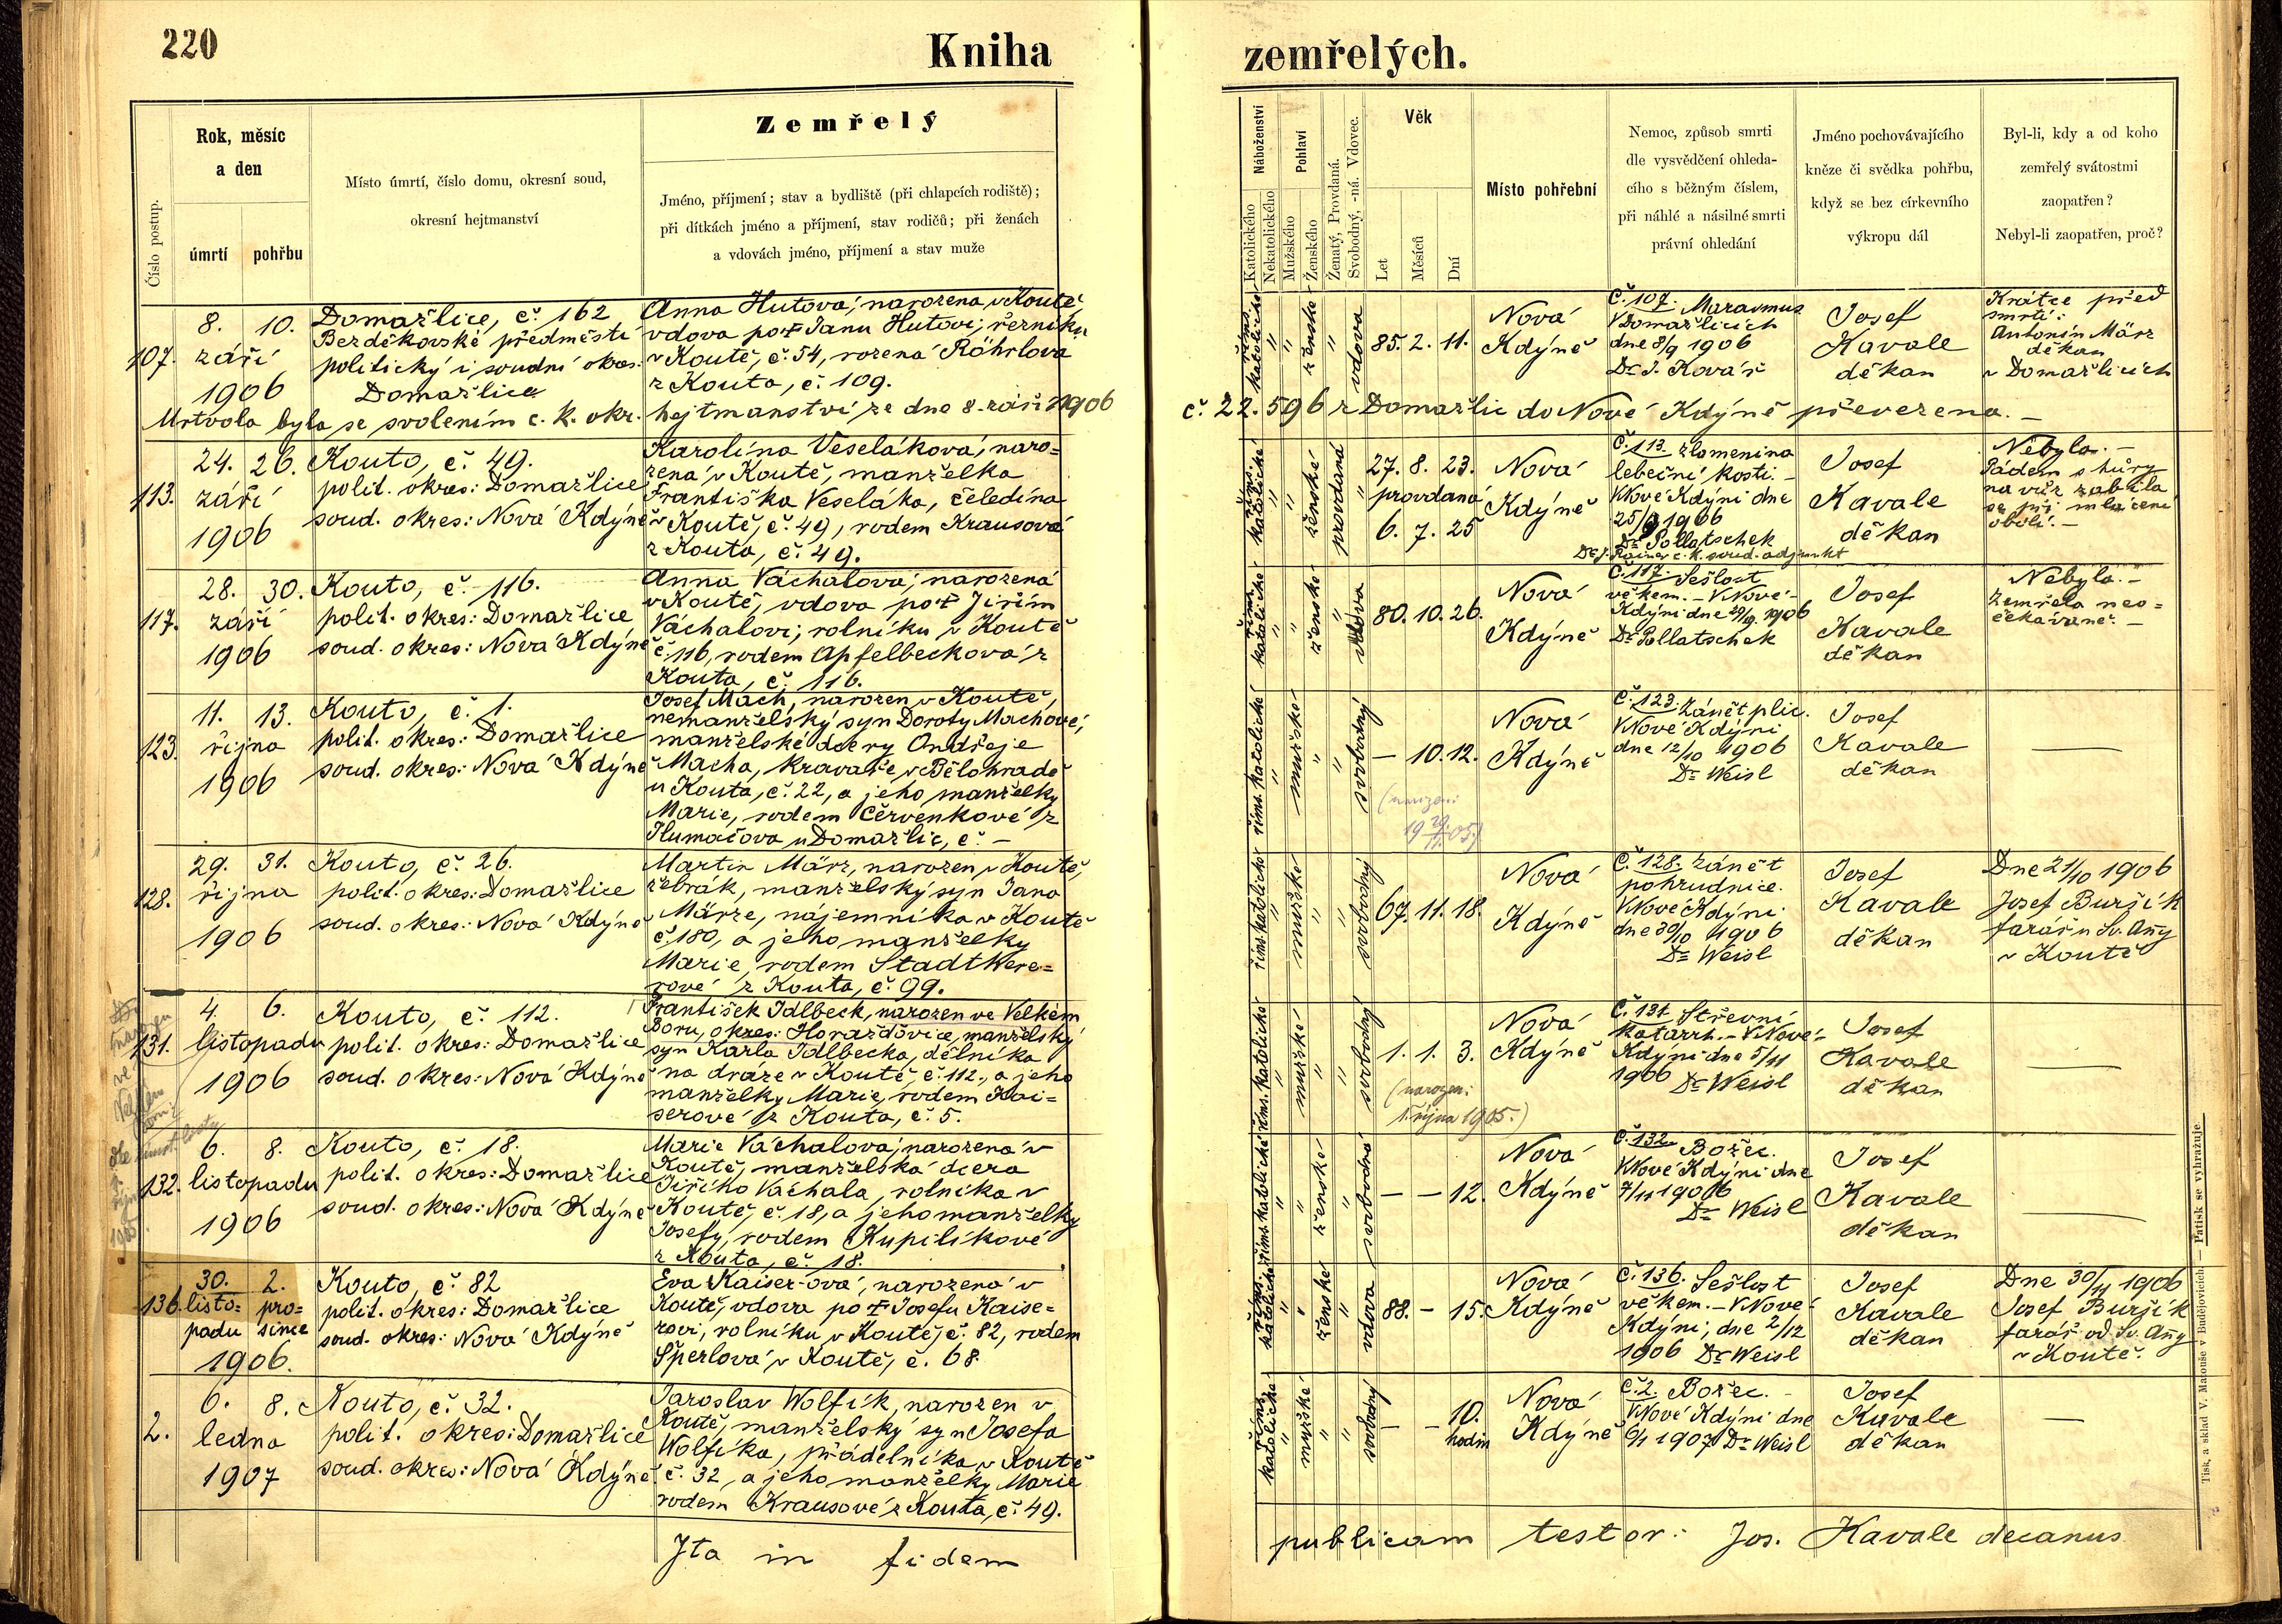 220
Kniha
zemřelých.
Číslo postup.
Rok, měsíc
a den
úmrtí
pohřbu
Místo úmrtí, číslo domu, okresní soud,
okresní hejtmanství
Zemřelý
Jméno, příjmení; stav a bydliště (při chlapcích rodiště);
při dítkách jméno a příjmení, stav rodičů; při ženách
a vdovách jméno, příjmení a stav muže
Náboženství
Katolického
Nekatolického
Pohlaví
Mužského
Ženského
Ženatý, Provdaná.
Svobodný, -ná. Vdovec.
Věk
Let
Měsíců
Dní
Místo pohřební
Nemoc, způsob smrti
dle vysvědčení ohleda-
cího s běžným číslem,
při náhlé a násilné smrti
právní ohledání
Jméno pochovávajícího
kněze či svědka pohřbu,
když se bez církevního
výkropu dál
Byl-li, kdy a od koho
zemřelý svátostmi
zaopatřen?
Nebyl-li zaopatřen, proč?
107.
8. 10.
září
1906
Domažlice, č. 162
Bezděkovské předměstí
politický i soudní okres:
Domažlice
Anna Hutova, narozena v Koutě,
vdova po † Janu Hutovi, řezníku
v Koutě, č. 54, rozená Röhrlova
z Kouta, č. 109.
řims. katolické
"
"
ženské
"
vdova
85. 2. 11.
Nová
Kdýně
Č. 107. Marasmus
V Domažlicích
dne 8/9 1906
Dr J. Kovář
Josef
Kavale
děkan
Krátce před
smrtí:
Antonín März
děkan
v Domažlicích
Mrtvola byla se svolením c. k. okr. hejtmanství ze dne 8. září 1906 č. 22.596 z Domažlic do Nové Kdýně převezena. —
113.
24. 26.
září
1906
Kouto, č. 49.
polit. okres: Domažlice
soud. okres: Nová Kdýně
Karolína Veseláková, naro=
zená v Koutě, manželka
Františka Veseláka, čeledína
v Koutě, č. 49, rodem Krausová
z Kouta, č. 49.
řims. katolické
"
"
ženské
"
provdaná
27. 8. 23.
provdaná
6. 7. 25
Nová
Kdýně
Č. 113. zlomenina
lebeční kosti. —
V Nové Kdýni dne
25/9 1906
Dr Pollatschek
Dr J. Rainer c. k. soud. adjunkt
Josef
Kavale
děkan
Nebyla. —
Pádem s hůry
na vůz zabila
se při mlácení
obilí. —
117.
28. 30.
září
1906
Kouto, č. 116.
polit. okres: Domažlice
soud. okres: Nová Kdýně
Anna Váchalova, narozená
v Koutě, vdova po † Jiřím
Váchalovi, rolníku v Koutě
č. 116, rodem Apfelbecková z
Kouta, č. 116.
řims. katolické
"
"
ženské
"
vdova
80. 10. 26.
Nová
Kdýně
Č. 117. Sešlost
věkem. — V Nové
Kdýni dne 29/9 1906
Dr Pollatschek
Josef
Kavale
děkan
Nebyla. —
Zemřela neo=
čekávaně. —
123.
11. 13.
října
1906
Kouto, č. 1.
polit. okres: Domažlice
soud. okres: Nová Kdýně
Josef Mach, narozen v Koutě,
nemanželský syn Doroty Machové,
manželské dcery Ondřeje
Macha, kraváře v Bělohradě
u Kouta, č. 22, a jeho manželky
Marie, rodem Červenkové z
Tlumačova u Domažlic, č. —
řims. katolické
"
mužské
"
"
svobodný
— 10. 12.
Nová
Kdýně
Č. 123. Zánět plic.
V Nové Kdýni
dne 12/10 1906
Dr Weisl
Josef
Kavale
děkan
—
128.
29. 31.
října
1906
Kouto, č. 26.
polit. okres: Domažlice
soud. okres: Nová Kdýně
Martin März, narozen v Koutě,
žebrák, manželský syn Jana
Märze, nájemníka v Koutě
č. 180, a jeho manželky
Marie, rodem Stadtwere=
rové z Kouta, č. 99.
řims. katolické
"
mužské
"
"
svobodný
67. 11. 18.
Nová
Kdýně
Č. 128. Zánět
pohrudnice.
V Nové Kdýni
dne 30/10 1906
Dr Weisl
Josef
Kavale
děkan
Dne 21/10 1906
Josef Buršík
farář u Sv. Anny
v Koutě
131.
4. 6.
listopadu
1906
Kouto, č. 112.
polit. okres: Domažlice
soud. okres: Nová Kdýně
František Idlbeck, narozen ve Velkém
Boru, okres: Horažďovice, manželský
syn Karla Idlbecka, dělníka
na dráze v Koutě, č. 112., a jeho
manželky Marie, rodem Kai=
serové z Kouta, č. 5.
řims. katolické
"
mužské
"
"
svobodný
1. 1. 3.
(narozen:
1. října 1905.)
Nová
Kdýně
Č. 131. Střevní
katarrh. — V Nové
Kdýni dne 5/11
1906 Dr Weisl
Josef
Kavale
děkan
—
132.
6. 8.
listopadu
1906
Kouto, č. 18.
polit. okres: Domažlice
soud. okres: Nová Kdýně
Marie Váchalova, narozená v
Koutě, manželská dcera
Jiřího Váchala, rolníka v
Koutě, č. 18, a jeho manželky
Josefy, rodem Kupilíkové
z Kouta, č. 18.
řims. katolické
"
"
ženské
"
svobodná
— — 12.
Nová
Kdýně
Č. 132. Božec.
V Nové Kdýni dne
7/11 1906
Dr Weisl
Josef
Kavale
děkan
—
136.
30. 2.
listo= pro=
padu since
1906.
Kouto, č. 82
polit. okres: Domažlice
soud. okres: Nová Kdýně
Eva Kaiser-ová, narozená v
Koutě, vdova po † Josefu Kaise=
rovi, rolníku v Koutě, č. 82, rodem
Šperlová v Koutě, č. 68.
řims. katolické
"
"
ženské
"
vdova
88. — 15.
Nová
Kdýně
Č. 136. Sešlost
věkem. — V Nové
Kdýni, dne 2/12
1906 Dr Weisl
Josef
Kavale
děkan
Dne 30/11 1906
Josef Buršík
farář od Sv. Anny
v Koutě.
2.
6. 8.
ledna
1907
Kouto, č. 32.
polit. okres: Domažlice
soud. okres: Nová Kdýně
Jaroslav Wolfík, narozen v
Koutě, manželský syn Josefa
Wolfíka, přádelníka v Koutě
č. 32, a jeho manželky Marie
rodem Krausové z Kouta, č. 49.
řims. katolické
"
mužské
"
"
svobodný
— — 10.
hodin
Nová
Kdýně
Č. 2. Božec. —
V Nové Kdýni dne
6/1 1907 Dr Weisl
Josef
Kavale
děkan
—
Ita in fidem publicam testor: Jos. Kavale decanus
Tisk. a sklad V. Matouše v Budějovicích. — Patisk se vyhražuje.